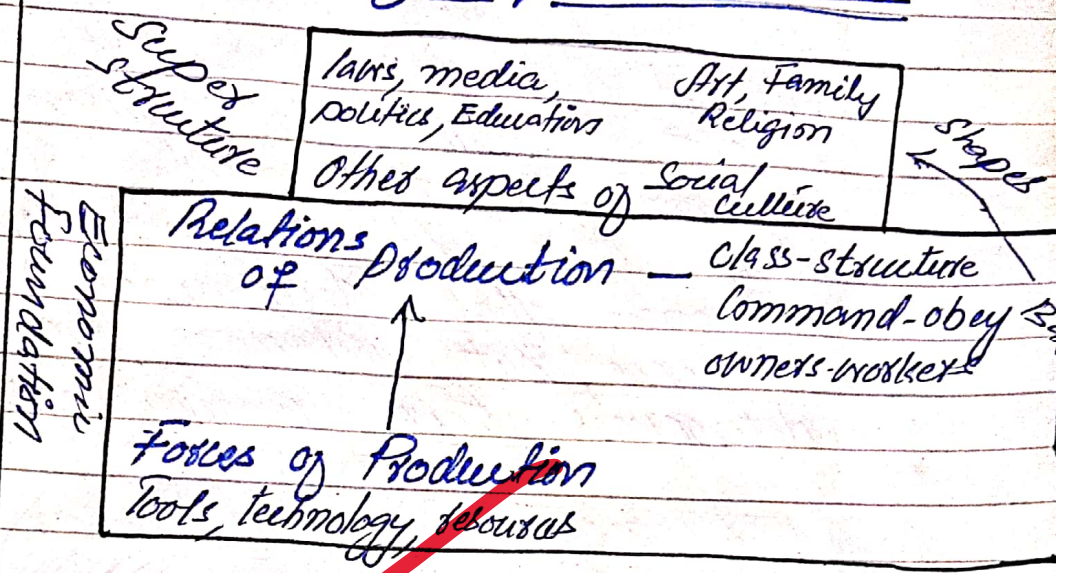 Super
structure
laws, media,
politics, Education
Art, Family
Religion
Other aspects of Social
culture
shapes
Economic
foundation
Relations
of Production — Class-structure
Command-obey
owners-workers
Forces of Production
Tools, technology, resources